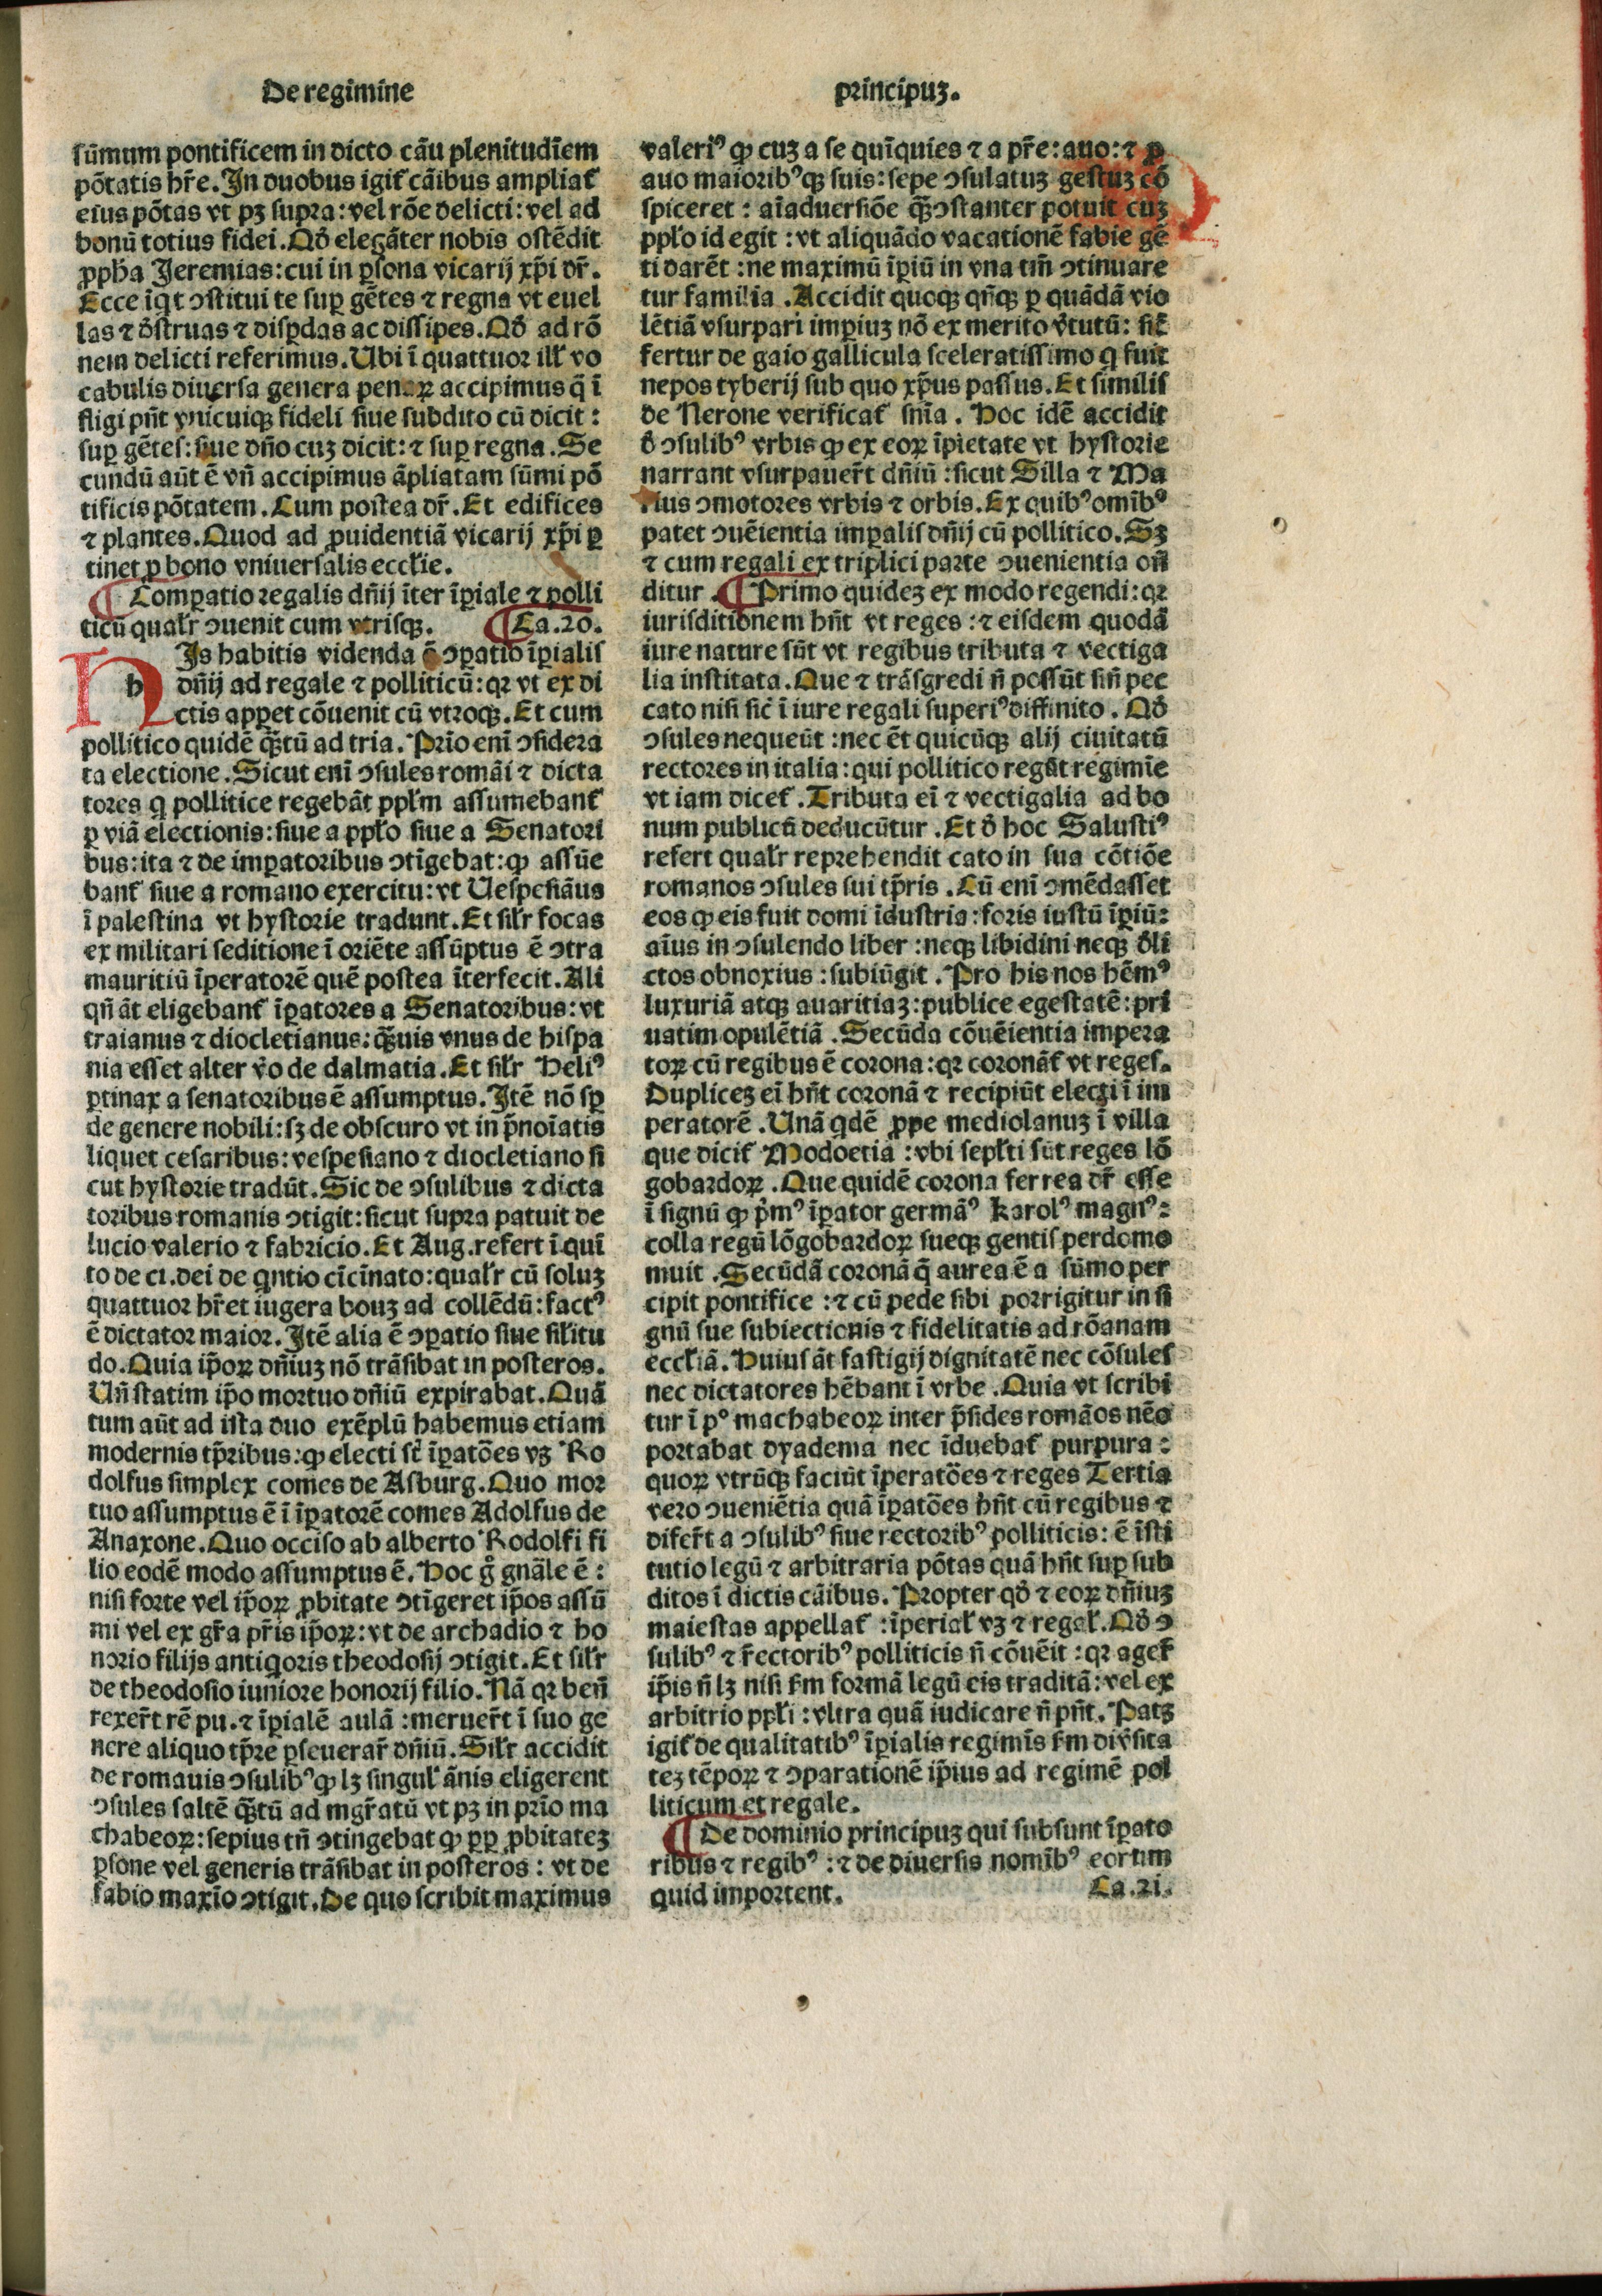 De regimine
principuꝫ.
sūmum pontificem in dicto cāu plenitudīem
pōtatis hr̄e. In duobus igit᷑ cāibus ampliat᷑
eius pōtas vt pꝫ supra: vel rōe delicti: vel ad
bonū totius fidei. Qđ elegāter nobis ostēdit
ꝓpħa Jeremias: cui in ꝑsona vicarij xp̄i dr̄.
Ecce īqͥt ↄstitui te suꝑ gētes ⁊ regna vt euel
las ⁊ đstruas ⁊ disꝑdas ac dissipes. Qđ ad rō
nem delicti referimus. Ubi ī quattuor ill᷑ vo
cabulis diuersa genera penaꝝ accipimus q̄ ī
fligi pn̄t vnicuiqꝫ fideli siue subdito cū dicit:
suꝑ gētes: siue dn̄o cuꝫ dicit: ⁊ suꝑ regna. Se
cundū aūt ē vn̄ accipimus āpliatam sūmi pō
tificis pōtatem. Cum postea dr̄. Et edifices
⁊ plantes. Quod ad ꝓuidentiā vicarij xp̄i ꝑ
tinet ꝓ bono vniuersalis eccƚie.
¶ Comꝑatio regalis dn̄ij īter īꝑiale ⁊ polli
ticū qualr̄ ↄuenit cum vtrisqꝫ. ¶ Ca.20.
h Is habitis videnda ē ↄꝑatio īꝑialis
dn̄ij ad regale ⁊ polliticū: qꝛ vt ex di
ctis apꝑet cōuenit cū vtroqꝫ. Et cum
pollitico quidē qͣꝫtū ad tria. Prīo enī ↄsidera
ta electione. Sicut enī ↄsules romāi ⁊ dicta
tores qͥ pollitice regebāt ppƚm assumebant᷑
ꝑ viā electionis: siue a ppƚo siue a Senatori
bus: ita ⁊ de imꝑatoribus ↄtīgebat: ꝙ assūe
bant᷑ siue a romano exercitu: vt Uespesiāus
ī palestina vt hystorie tradunt. Et silr̄ focas
ex militari seditione ī oriēte assūptus ē ↄtra
mauritiū īperatorē quē postea īterfecit. Ali
qn̄ āt eligebant᷑ īꝑatores a Senatoribus: vt
traianus ⁊ diocletianus: qͣꝫuis vnus de hispa
nia esset alter v̄o de dalmatia. Et silr̄ Heliꝰ
ꝑtinax a senatoribus ē assumptus. Itē nō sꝑ
de genere nobili: sꝫ de obscuro vt in p̄noīatis
liquet cesaribus: vespesiano ⁊ diocletiano si
cut hystorie tradūt. Sic de ↄsulibus ⁊ dicta
toribus romanis ↄtigit: sicut supra patuit de
lucio valerio ⁊ fabricio. Et Aug. refert ī qui
to de ci. dei de qͥntio cīcīnato: qualr̄ cū soluꝫ
quattuor hr̄et iugera bouꝫ ad collēdū: factꝰ
ē dictator maior. Itē alia ē ↄꝑatio siue siƚitu
do. Quia ip̄oꝝ dn̄iuꝫ nō trāsibat in posteros.
Un̄ statim ip̄o mortuo dn̄iū expirabat. Quā
tum aūt ad ista duo exēplū habemus etiam
modernis tp̄ribus: ꝙ electi st̄ īꝑatōes vꝫ Ro
dolfus simplex comes de Asburg. Quo mor
tuo assumptus ē ī īꝑatorē comes Adolfus de
Anaxone. Quo occiso ab alberto Rodolfi fi
lio eodē modo assumptus ē. Hoc gͦ gnāle ē:
nisi forte vel ip̄oꝝ ꝓbitate ↄtīgeret ip̄os assū
mi vel ex gr̄a pr̄is ip̄oꝝ: vt de archadio ⁊ ho
norio filijs antiqͥoris theodosij ↄtigit. Et silr̄
de theodosio iuniore honorij filio. Nā qꝛ ben̄
rexer̄t rē pu. ⁊ īꝑialē aulā: meruer̄t ī suo ge
nere aliquo tp̄re ꝑseuerar̄ dn̄iū. Silr̄ accidit
de romauis ↄsulibꝰ ꝙ lꝫ singul᷑ ānis eligerent
ↄsules saltē qͣꝫtū ad mgr̄atū vt pꝫ in prīo ma
chabeoꝝ: sepius tn̄ ↄtingebat ꝙ ꝓꝑ ꝓbitateꝫ
ꝑsone vel generis trāsibat in posteros: vt de
fabio maxīo ↄtigit. De quo scribit maximus
valeriꝰ ꝙ cuꝫ a se quīquies ⁊ a pr̄e: auo: ⁊ ꝓ
auo maioribꝰqꝫ suis: sepe ↄsulatuꝫ gestuꝫ cō
spiceret: aīaduersiōe qͣꝫↄstanter potuit cuꝫ
ppƚo id egit: vt aliquādo vacationē fabie gē
ti darēt: ne maximū īꝑiū in vna tm̄ ↄtinuare
tur familia. Accidit quoqꝫ qn̄qꝫ ꝑ quādā vio
lētiā vsurpari imꝑiuꝫ nō ex merito v̄tutū: sic̄
fertur de gaio gallicula sceleratissimo qͥ fuit
nepos tyberij sub quo xp̄us passus. Et similis
de Nerone verificat᷑ sn̄ia. Hoc idē accidit
đ ↄsulibꝰ vrbis ꝙ ex eoꝝ īpietate vt hystorie
narrant vsurpauer̄t dn̄iū: sicut Silla ⁊ Ma
rius ↄmotores vrbis ⁊ orbis. Ex quibꝰ omībꝰ
patet ↄuēientia imꝑalis dn̄ij cū pollitico. Sꝫ
⁊ cum regali ex triplici parte ↄuenientia on̄
ditur. ¶ Primo quideꝫ ex modo regendi: qꝛ
iurisditionem hn̄t vt reges: ⁊ eisdem quodā
iure nature sūt vt regibus tributa ⁊ vectiga
lia institata. Que ⁊ trāsgredi n̄ possūt sin̄ pec
cato nisi sic̄ ī iure regali superiꝰ diffinito. Qđ
ↄsules nequeūt: nec ēt quicūqꝫ alij ciuitatū
rectores in italia: qui pollitico regūt regimīe
vt iam dicet᷑. Tributa eī ⁊ vectigalia ad bo
num publicū deducūtur. Et đ hoc Salustiꝰ
refert qualr̄ reprehendit cato in sua cōtiōe
romanos ↄsules sui tp̄ris. Cū enī ↄmēdasset
eos ꝙ eis fuit domi īdustria: foris iustū īꝑiū:
aīus in ↄsulendo liber: neqꝫ libidini neqꝫ đli
ctos obnoxius: subiūgit. Pro his nos hēmꝰ
luxuriā atqꝫ auaritiaꝫ: publice egestatē: pri
uatim opulētiā. Secūda cōuēientia impera
toꝝ cū regibus ē corona: qꝛ coronāt᷑ vt reges.
Dupliceꝫ eī hn̄t coronā ⁊ recipiūt electi ī im
peratorē. Unā qͥdē ꝓpe mediolanuꝫ ī villa
que dicit᷑ Modoetia: vbi sepƚti sūt reges lō
gobardoꝝ. Que quidē corona ferrea dr̄ esse
ī signū ꝙ pͥmꝰ īꝑator germāꝰ karolꝰ magnꝰ:
colla regū lōgobardoꝝ sueqꝫ gentis perdomo
muit. Secūdā coronā q̄ aurea ē a sūmo per
cipit pontifice: ⁊ cū pede sibi porrigitur in si
gnū sue subiectionis ⁊ fidelitatis ad rōanam
eccƚiā. Huius āt fastigij dignitatē nec cōsules
nec dictatores hēbant ī vrbe. Quia vt scribi
tur ī pͦ machabeoꝝ inter p̄sides romāos nēo
portabat dyadema nec īduebat᷑ purpura:
quoꝝ vtrūqꝫ faciūt īperatōes ⁊ reges Tertia
vero ↄueniētia quā īꝑatōes hn̄t cū regibus ⁊
difer̄t a ↄsulibꝰ siue rectoribꝰ polliticis: ē īsti
tutio legū ⁊ arbitraria pōtas quā hn̄t suꝑ sub
ditos ī dictis cāibus. Propter qđ ⁊ eoꝝ dn̄iuꝫ
maiestas appellat᷑: īperial᷑ vꝫ ⁊ regal᷑. Qđ ↄ
sulibꝰ ⁊ r̄ectoribꝰ polliticis n̄ cōuēit: qꝛ ager̄
ip̄is n̄ lꝫ nisi ẜm formā legū eis traditā: vel ex
arbitrio ppƚi: vltra quā iudicare n̄ pn̄t. Patꝫ
igit᷑ de qualitatibꝰ īꝑialis regimīs ẜm diṽsita
teꝫ tēpoꝝ ⁊ ↄparationē ip̄ius ad regimē pol
liticum et regale.
¶ De dominio principuꝫ qui subsunt īꝑato
ribus ⁊ regibꝰ: ⁊ de diuersis nomībꝰ eorum
quid importent. Ca.21.